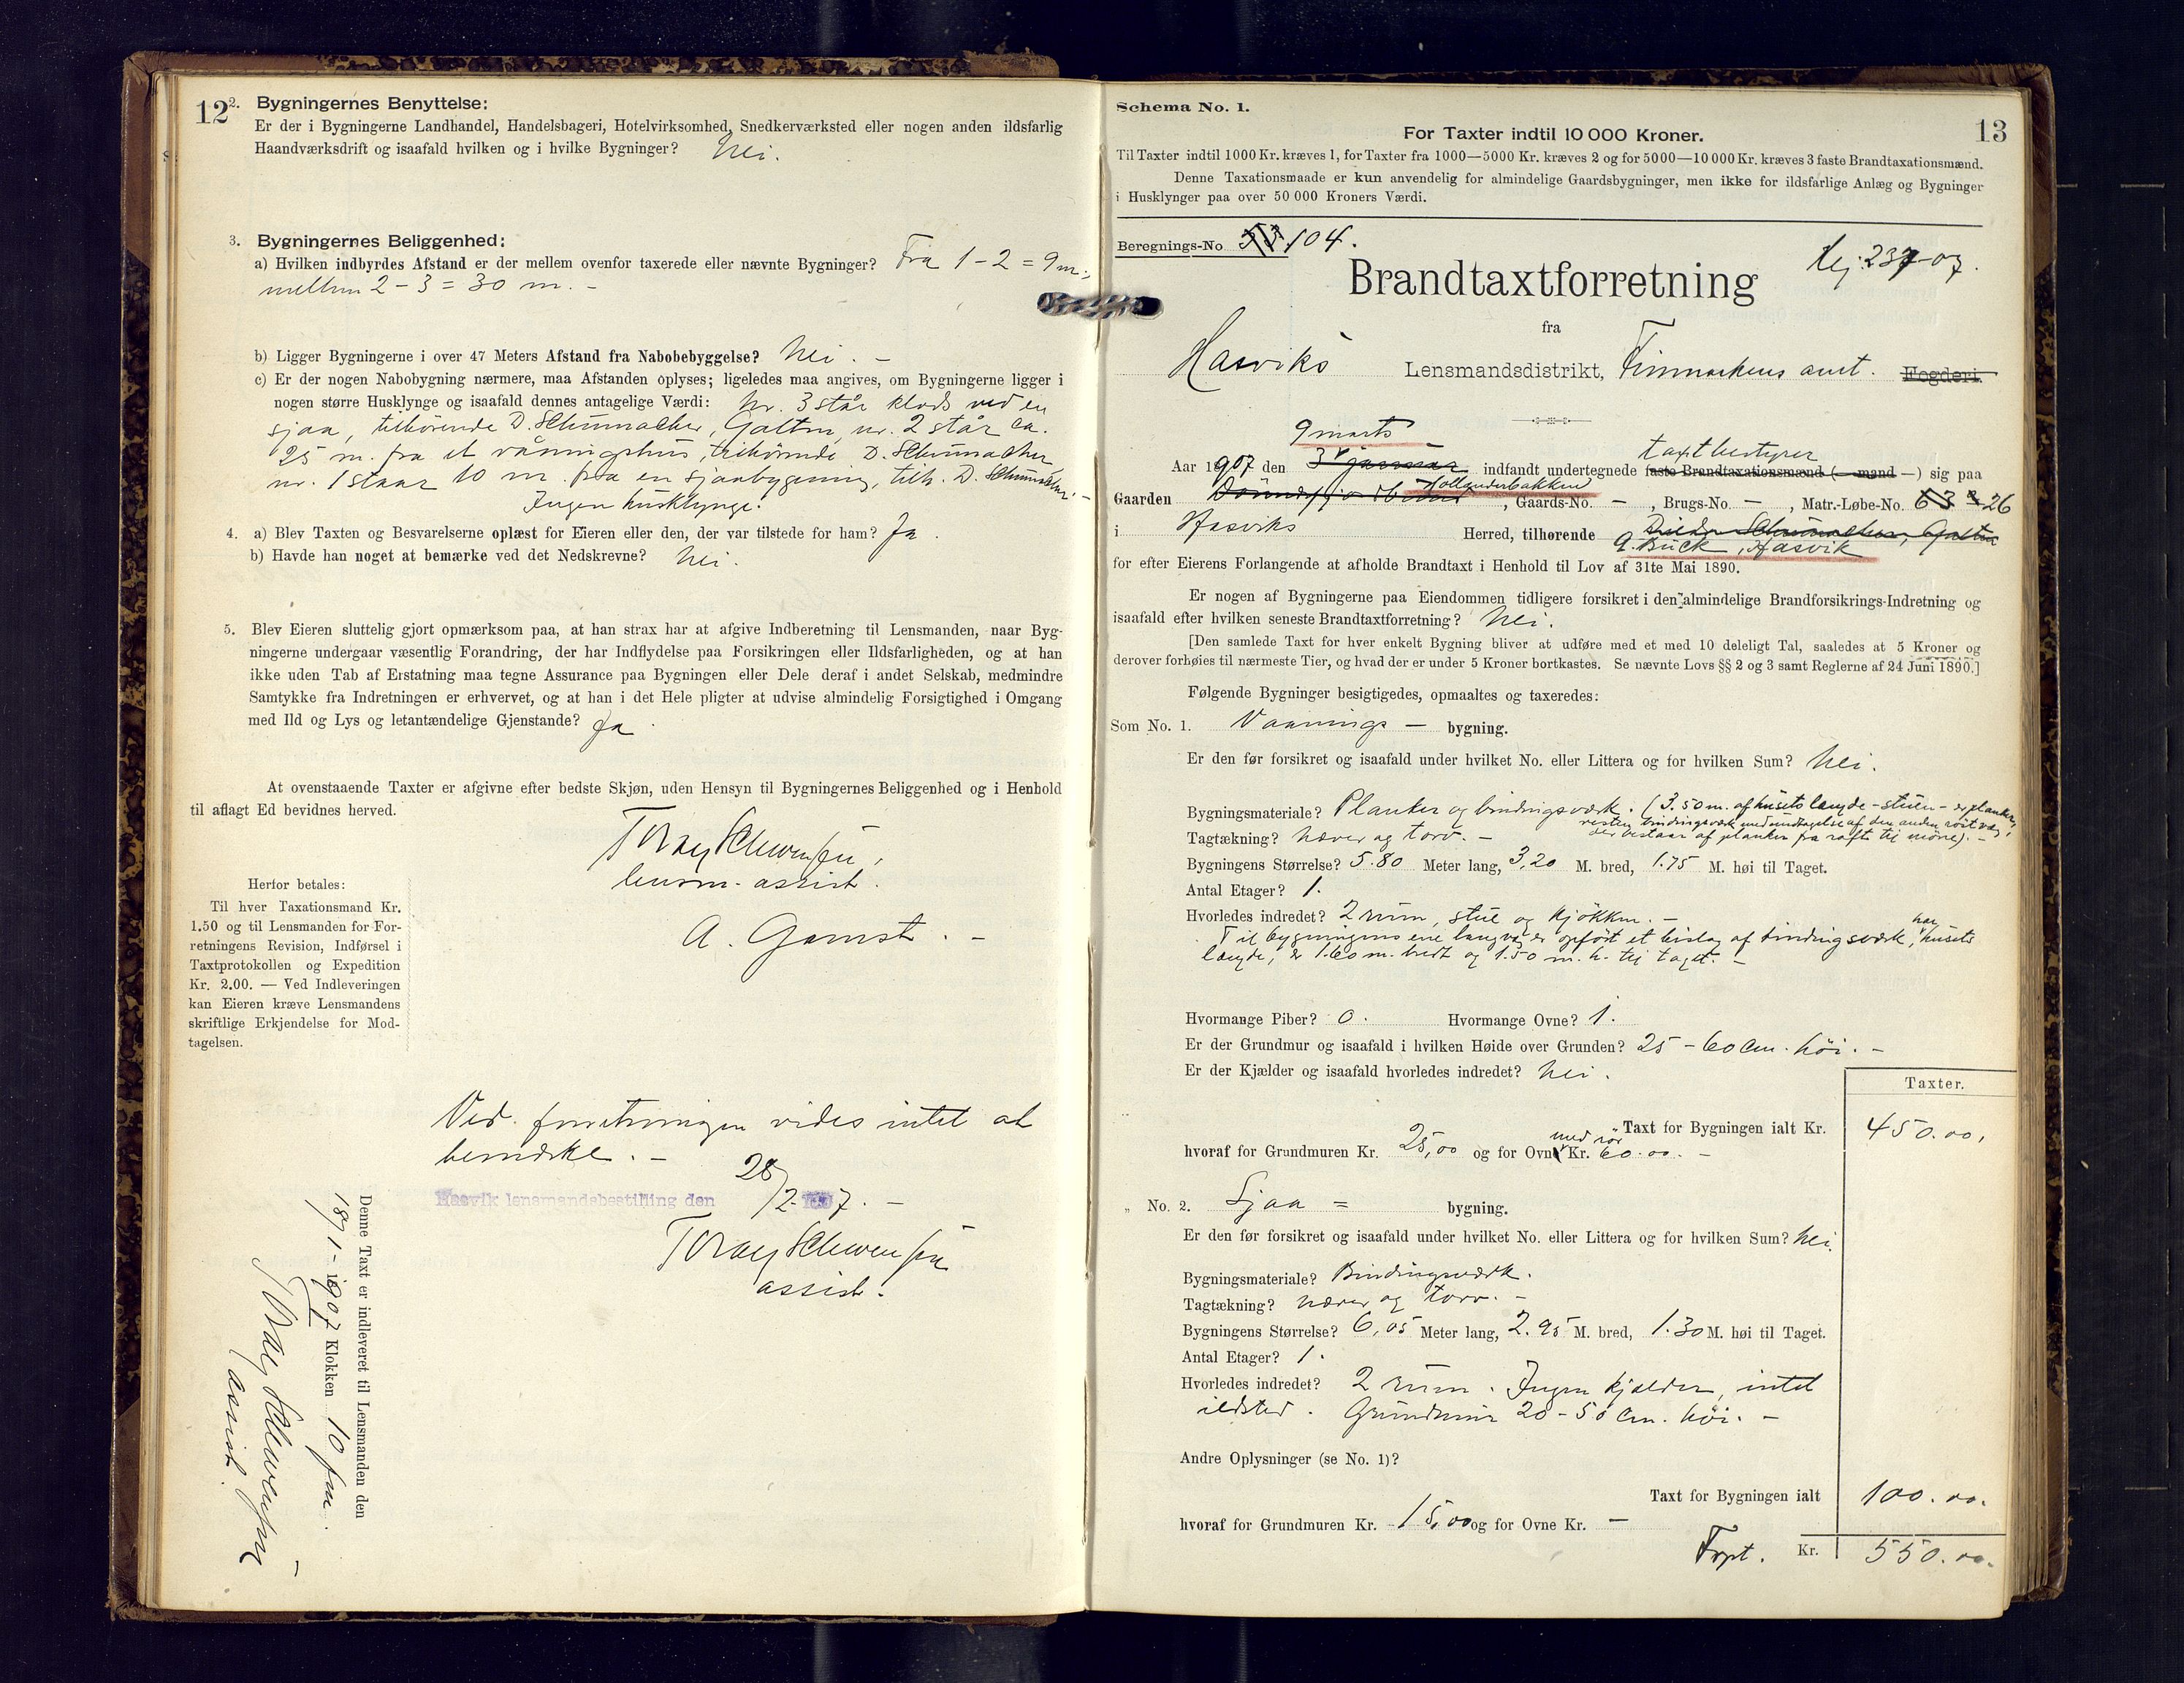 12
2. Bygningernes Benyttelse:
Er der i Bygningerne Landhandel, Handelsbageri, Hotelvirksomhed, Snedkerværksted eller nogen anden ildsfarlig
Haandværksdrift og isaafald hvilken og i hvilke Bygninger? Nei.
3. Bygningernes Beliggenhed:
a) Hvilken indbyrdes Afstand er der mellem ovenfor taxerede eller nævnte Bygninger? Fra 1 - 2 = 9 m.;
mellem 2 - 3 = 30 m. -
b) Ligger Bygningerne i over 47 Meters Afstand fra Nabobebyggelse? Nei. -
c) Er der nogen Nabobygning nærmere, maa Afstanden oplyses; ligeledes maa angives, om Bygningerne ligger i
nogen større Husklynge og isaafald dennes antagelige Værdi: nr. 3 står klods ved en
sjaa, tilhörende D. Schumacher, Galten, nr. 2 står ca.
25 m. fra et våningshus, tilhörende D. Schumacher
nr. 1 staar 10 m. fra en sjaabygning, tilh. D. Schumacher. -
Ingen husklynge.
4. a) Blev Taxten og Besvarelserne oplæst for Eieren eller den, der var tilstede for ham? Ja.
b) Havde han noget at bemærke ved det Nedskrevne? Nei.
5. Blev Eieren sluttelig gjort opmærksom paa, at han strax har at afgive Indberetning til Lensmanden, naar Byg-
ningerne undergaar væsentlig Forandring, der har Indflydelse paa Forsikringen eller Ildsfarligheden, og at han
ikke uden Tab af Erstatning maa tegne Assurance paa Bygningen eller Dele deraf i andet Selskab, medmindre
Samtykke fra Indretningen er erhvervet, og at han i det Hele pligter at udvise almindelig Forsigtighed i Omgang
med Ild og Lys og letantændelige Gjenstande? Ja.
At ovenstaaende Taxter er afgivne efter bedste Skjøn, uden Hensyn til Bygningernes Beliggenhed og i Henhold
til aflagt Ed bevidnes herved.
lensm. assist.
A. Gamst. -
Herfor betales:
Til hver Taxationsmand Kr.
1.50 og til Lensmanden for For-
retningens Revision, Indførsel i
Taxtprotokollen og Expedition
Kr. 2.00. — Ved Indleveringen
kan Eieren kræve Lensmandens
skriftlige Erkjendelse for Mod-
tagelsen.
Ved forretningen vides intet at
bemærke. -
Hasvik lensmandsbestilling den 28/2 7. -
assist.
Denne Taxt er indleveret til Lensmanden den
18/1 - 1907 Klokken 10 fm.
assist.
Schema No. 1.
13
For Taxter indtil 10 000 Kroner.
Til Taxter indtil 1000 Kr. kræves 1, for Taxter fra 1000—5000 Kr. kræves 2 og for 5000—10 000 Kr. kræves 3 faste Brandtaxationsmænd.
Denne Taxationsmaade er kun anvendelig for almindelige Gaardsbygninger, men ikke for ildsfarlige Anlæg og Bygninger
i Husklynger paa over 50 000 Kroners Værdi.
Beregnings-No 104.
237-07.
Brandtaxtforretning
fra
Hasviks Lensmandsdistrikt, Finmarkens amt. Fogderi.
9 marts
taxtbestyrer
Aar 1907 den 3 januar indfandt undertegnede faste Brandtaxationsmænd (— mand —) sig paa
Hollenderbakken
Gaarden , Gaards-No. — , Brugs-No. — , Matr.-Løbe-No. 26
i Hasviks Herred, tilhørende Schumacher, Galten
Buck, Hasvik
for efter Eierens Forlangende at afholde Brandtaxt i Henhold til Lov af 31te Mai 1890.
Er nogen af Bygningerne paa Eiendommen tidligere forsikret i den almindelige Brandforsikrings-Indretning og
isaafald efter hvilken seneste Brandtaxtforretning? Nei.
[Den samlede Taxt for hver enkelt Bygning bliver at udføre med et med 10 deleligt Tal, saaledes at 5 Kroner og
derover forhøies til nærmeste Tier, og hvad der er under 5 Kroner bortkastes. Se nævnte Lovs §§ 2 og 3 samt Reglerne af 24 Juni 1890.]
Følgende Bygninger besigtigedes, opmaaltes og taxeredes:
Som No. 1. Vaanings — bygning.
Er den før forsikret og isaafald under hvilket No. eller Littera og for hvilken Sum? Nei.
Bygningsmateriale? Planker og bindingsværk. (3.50 m. af husets længde - stuen - er planker,
resten bindingsværk med undtagelse af den anden röstvæg,
Tagtækning? Næver og torv. - der bestaar af planker fra raft til möne). -
Bygningens Størrelse? 5.80 Meter lang, 3,20 M. bred, 1.75 M. høi til Taget.
Antal Etager? 1.
Hvorledes indredet? 2 rum, stue og kjökken. -
Til bygningens ene langvæg er opfört et bislag af bindingsværk, har husets
længde, er 1.60 m. bredt og 1.50 m. h. til taget. -
Hvormange Piber? 0. Hvormange Ovne? 1.
Er der Grundmur og isaafald i hvilken Høide over Grunden? 25 - 60 cm. höi. -
Er der Kjælder og isaafald hvorledes indredet? Nei.
Taxter.
Taxt for Bygningen ialt Kr. 450.00.
med rör
hvoraf for Grundmuren Kr. 25,00 og for Ovn Kr. 60.00. -
„ No. 2. Sjaa = bygning.
Er den før forsikret og isaafald under hvilket No. eller Littera og for hvilken Sum? Nei.
Bygningsmateriale? Bindingsværk.
Tagtækning? Næver og torv. -
Bygningens Størrelse? 6,05 Meter lang, 2.95 M. bred, 1.30 M. høi til Taget.
Antal Etager? 1.
Hvorledes indredet? 2 rum. Ingen kjælder, intet
ildsted. Grundmur 20 - 50 cm. höi. -
Andre Oplysninger (se No. 1)?
Taxt for Bygningen ialt 100.00.
hvoraf for Grundmuren Kr. 15,00 og for Ovne Kr. —
Frpt. Kr. 550.00.